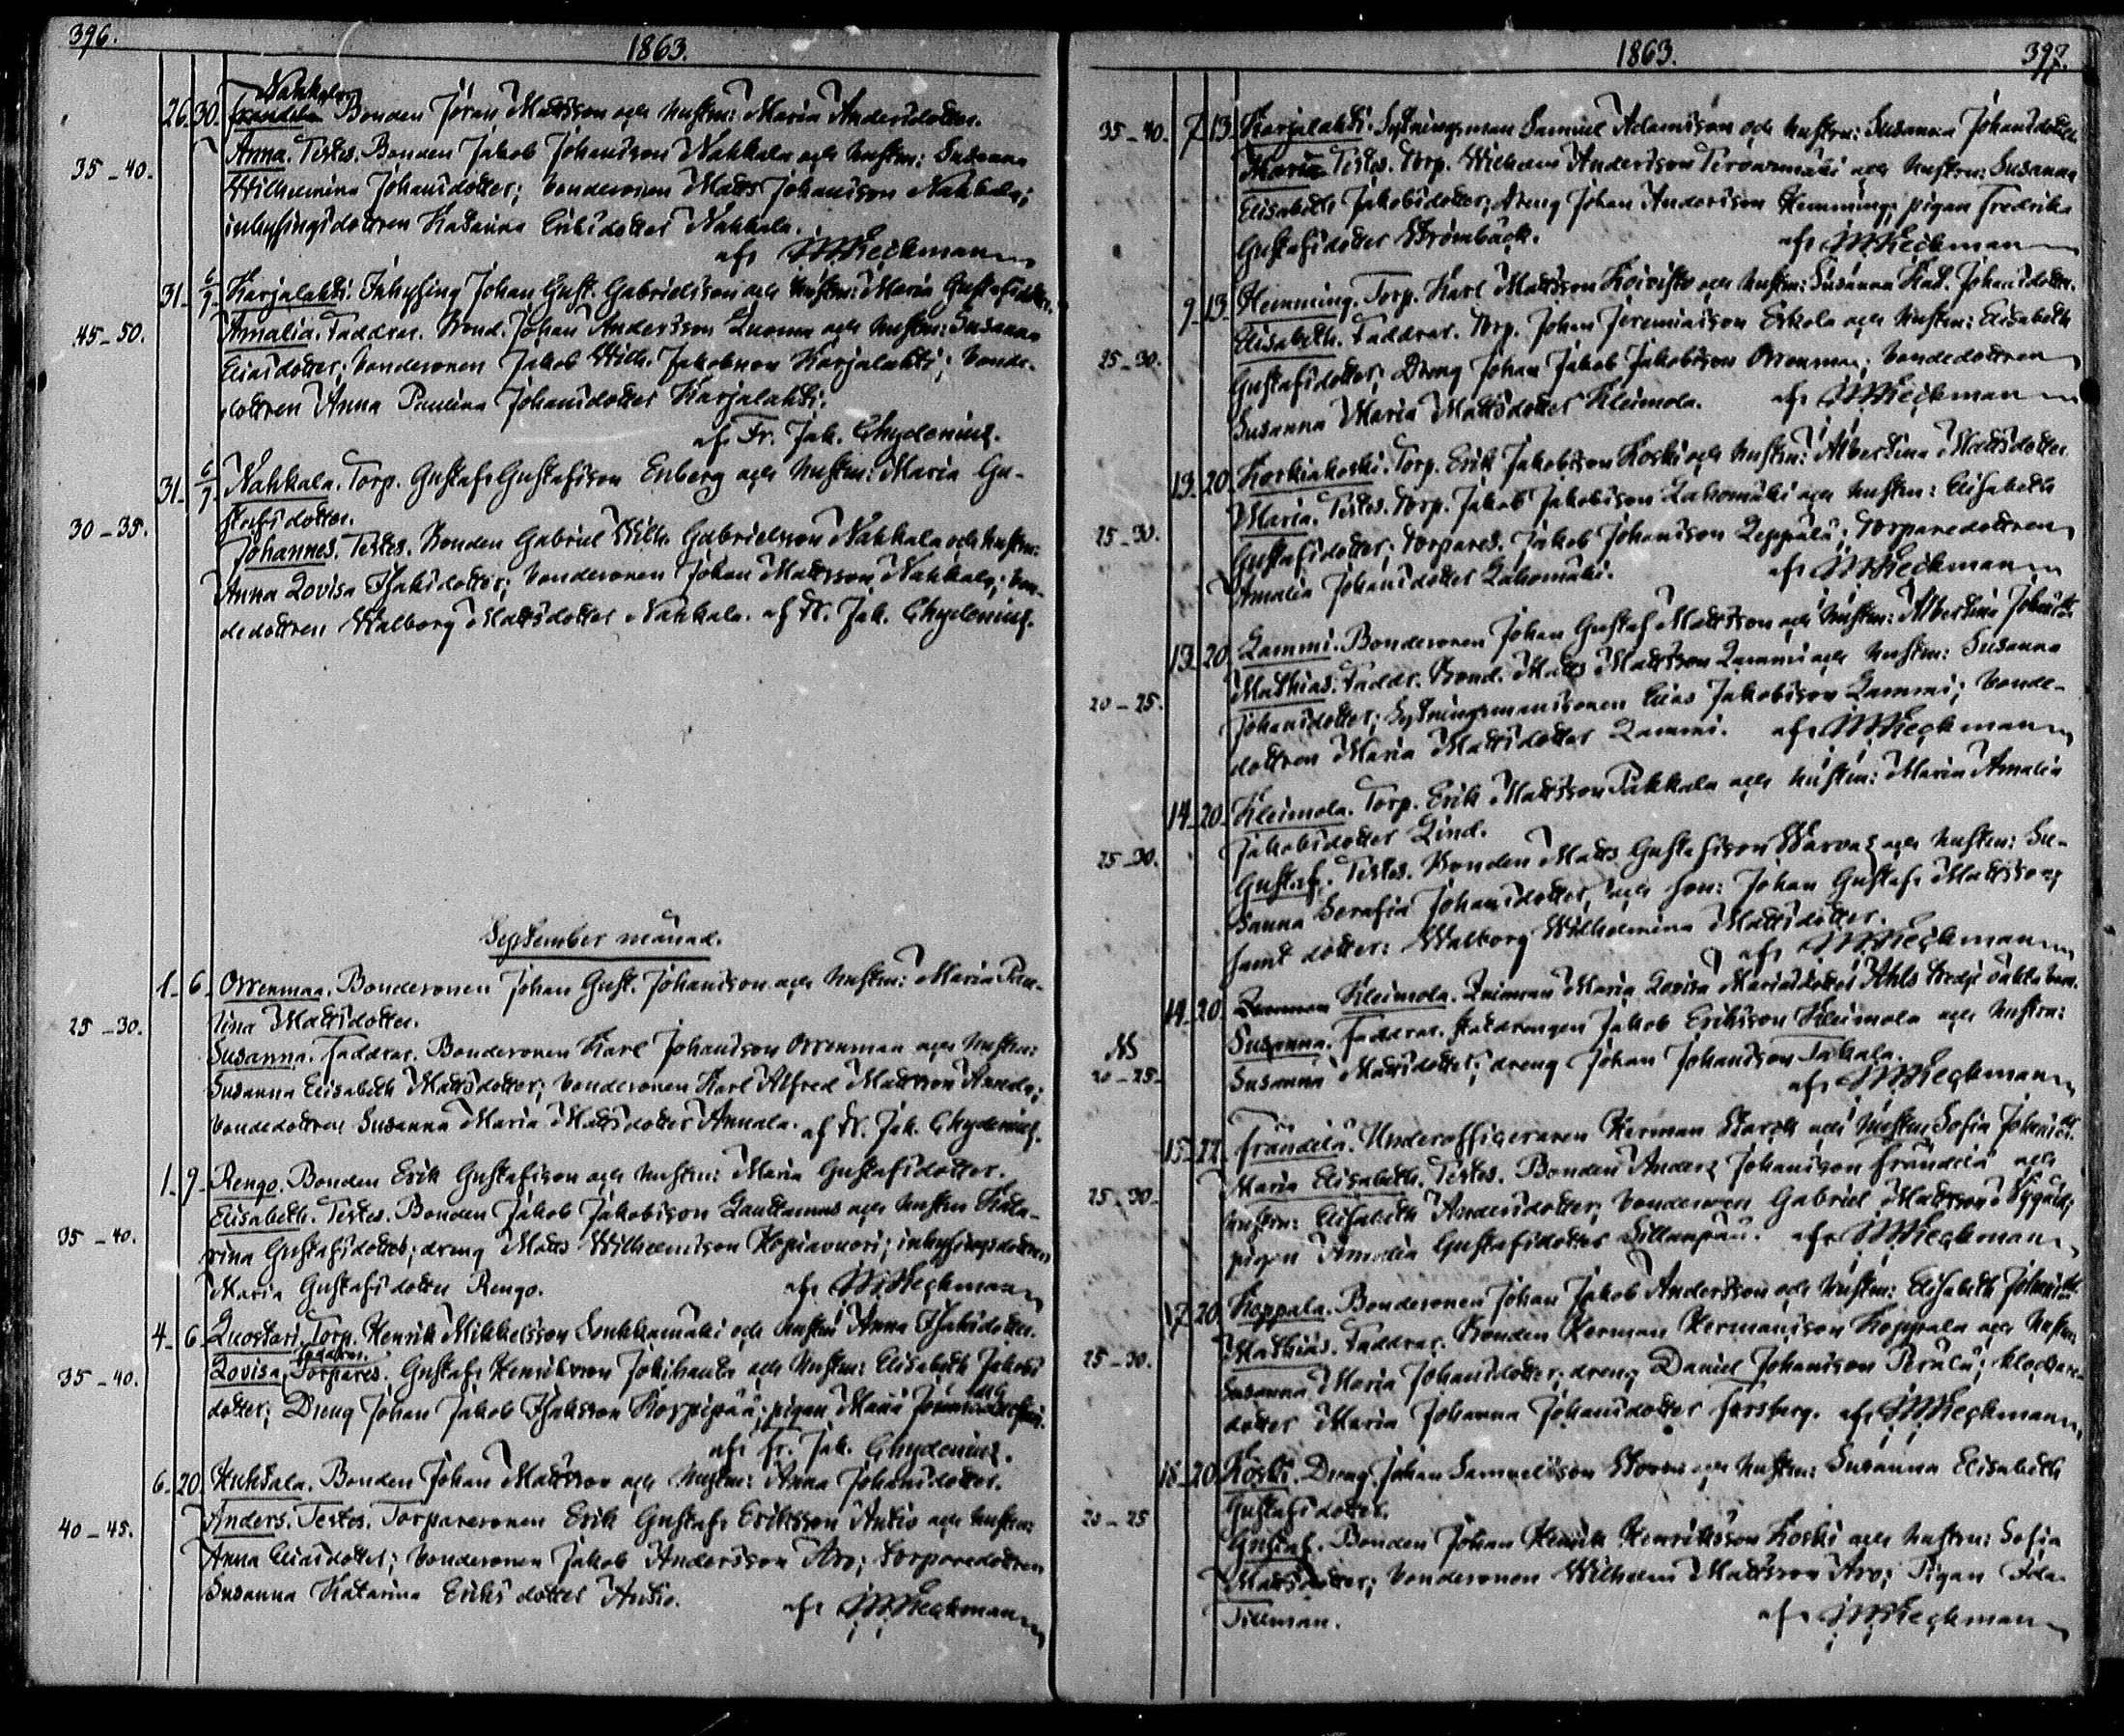 396.
1863.
Nahkala
26. 30. Frändilä Bonden Jöran Mattsson och hustrun: Maria Andersdotter.
35-40. Anna. Testes: Bonden Jakob Johansson Nahkala och hustrun: Susanna
Wilhelmina Johansdotter; bondesonen Matts Johansson Nahkala;
inhysingsdottren Katarina Eriksdotter Nahkala.
af M Heckman
31. 6/9. Karjalahti. Inhysing Johan Gust. Gabrielsson och hustrun: Maria Gustafsdotter.
45-50. Amalia. Faddrar. Bond. Johan Andersson och hustrun: Susanna
Eliasdotter; bondesonen Jakob Wilh. Jakobsson Karjalahti; bonde-
dottren Anna Paulina Johansdotter Karjalahti.
af Fr. Jak. Chydenius.
31. 6/9. Nahkala. Torp. Gustaf Gustafsson Enberg och hustrun: Maria Gu-
stafsdotter.
30-35. Johannes. Testes. Bonden Gabriel Wilh. Gabrielsson Nahkala och hustrun:
Anna Lovisa Isaksdotter; bondesonen Johan Mattsson Nahkala; bon-
dedottren Walborg Mattsdotter Nahkala. af Fr. Jak. Chydenius.
September månad.
1. 6. Orrenmaa. Bondesonen Johan Gust. Johansson och hustrun: Maria Pau-
lina Mattsdotter.
25-30. Susanna. Faddrar. Bondesonen Karl Johansson Orrenmaa och hustrun:
Susanna Elisabeth Mattsdotter; bondesonen Karl Alfred Mattsson Annala;
bondedottren Susanna Maria Mattsdotter Annala. af Fr. Jak. Chydenius.
1. 9. Rengo. Bonden Erik Gustafsson och hustrun: Maria Gustafsdotter.
35-40. Elisabeth. Testes. Bonden Jakob Jakobsson Lauttamus och hustrun Kata-
rina Gustafsdotter; dreng Matts Wilhelmsson Kopiavuori; inhysingsdottren
Maria Gustafsdotter Rengo. af M Heckman
4. 6. Luostari. Torp. Henrik Mikkelsson Loukkamäki och hustrun Anna Isaksdotter.
Faddrar.
35-40. Lovisa. Torpares. Gustaf Henriksson Jokihanta och hustrun: Elisabeth Jakobs
dotter; Dreng Johan Jakob Isaksson Korpipää; pigan Maria
af Fr. Jak. Chydenius.
6. 20. Huhtala. Bonden Johan Mattsson och hustrun: Anna Johansdotter.
40-45. Anders. Testes. Torparesonen Erik Gustaf Eriksson Autio och hustrun:
Anna Eliasdotter; bondesonen Jakob Andersson Aro; torparedottren
Susanna Katarina Eriksdotter Autio. af M Heckman
1863. 397.
35-40. 7. 13. Karjalahti. Sytningsman Samuel Adamsson och hustrun: Susanna Johansdotter
Maria. Testes. Torp. Wilhelm Andersson Tervasmäki och hustrun: Susanna
Elisabeth Jakobsdotter; dreng Johan Andersson Hemming; pigan Fredrika
Gustafsdotter Strömbäck. af M Heckman
9. 13. Hemming. Torp. Karl Mattsson Koivisto och hustrun: Susanna Kat. Johansdotter.
25-30. Elisabeth. Faddrar. Torp. Johan Jeremiasson Eskola och hustrun: Elisabeth
Gustafsdotter; Dreng Johan Jakob Jakobsson Orrenmaa; bondedottren
Susanna Maria Mattsdotter Kleimola. af M Heckman
13. 20. Korkiakoski. Torp. Erik Jakobsson Koski och hustrun: Albertina Mattsdotter
25-30. Maria. Testes. Torp. Jakob Jakobsson Lahomäki och hustrun: Elisabeth
Gustafsdotter; torpares. Jakob Johansson Leppälä; torparedottren
Amalia Johansdotter Lahomäki. af M Heckman
13. 20. Lammi. Bondesonen Johan Gustaf Mattsson och hustrun: Albertina Johansdtr
20-25. Mathias. Faddr. Bond. Matts Mattsson Lammi och hustrun: Susanna
Johansdotter; Sytningsmanssonen Elias Jakobsson Lammi; bonde-
dottren Maria Mattsdotter Lammi. af M Heckman
14. 20. Kleimola. Torp. Erik Mattsson Pakkala och hustrun: Maria Amalia
Jakobsdotter Lind.
25-30. Gustaf. Testes. Bonden Matts Gustafsson Warvas och hustrun: Su-
sanna Serafia Johansdotter, och son: Johan Gustaf Mattsson
samt dotter: Walborg Wilhelmina Mattsdotter.
af M Heckman
14. 20. Kleimola. Qvinnan Maria Lovisa Mariasdotter Ahls tredje oäkta barn.
20-25. Susanna. Faddrar. Statdrengen Jakob Eriksson Kleimola och hustrun:
Susanna Mattsdotter; dreng Johan Johansson Takala.
af M Heckman
15. 27. Frändilä. Underofficeraren Herman Starck och hustrun Sofia Johansdtr.
25-30. Maria Elisabeth. Testes. Bonden Anders Johansson Frändilä och
hustrun: Elisabeth Andersdotter; bondesonen Gabriel Mattsson
pigan Amalia Gustafsdotter Sillanpää. af M Heckman
17. 20. Koppala. Bondesonen Johan Jakob Andersson och hustrun: Elisabeth Johansdtr
25-30. Mathias. Faddrar. Bonden Herman Hermansson Koppala och hustrun:
Susanna Maria Johansdotter; dreng Daniel Johansson Perälä; klockare-
dotter Maria Johanna Johansdotter Forsberg. af M Heckman
18. 20. Koski. Dreng Johan Samuelsson och hustrun: Susanna Elisabeth
Gustafsdotter.
20-25 Gustaf. Bonden Johan Henrik Henriksson Koski och hustrun: Sofia
Mattsdotter; bondesonen Wilhelm Mattsson Aro; Pigan Ida
Tillman. af M Heckman